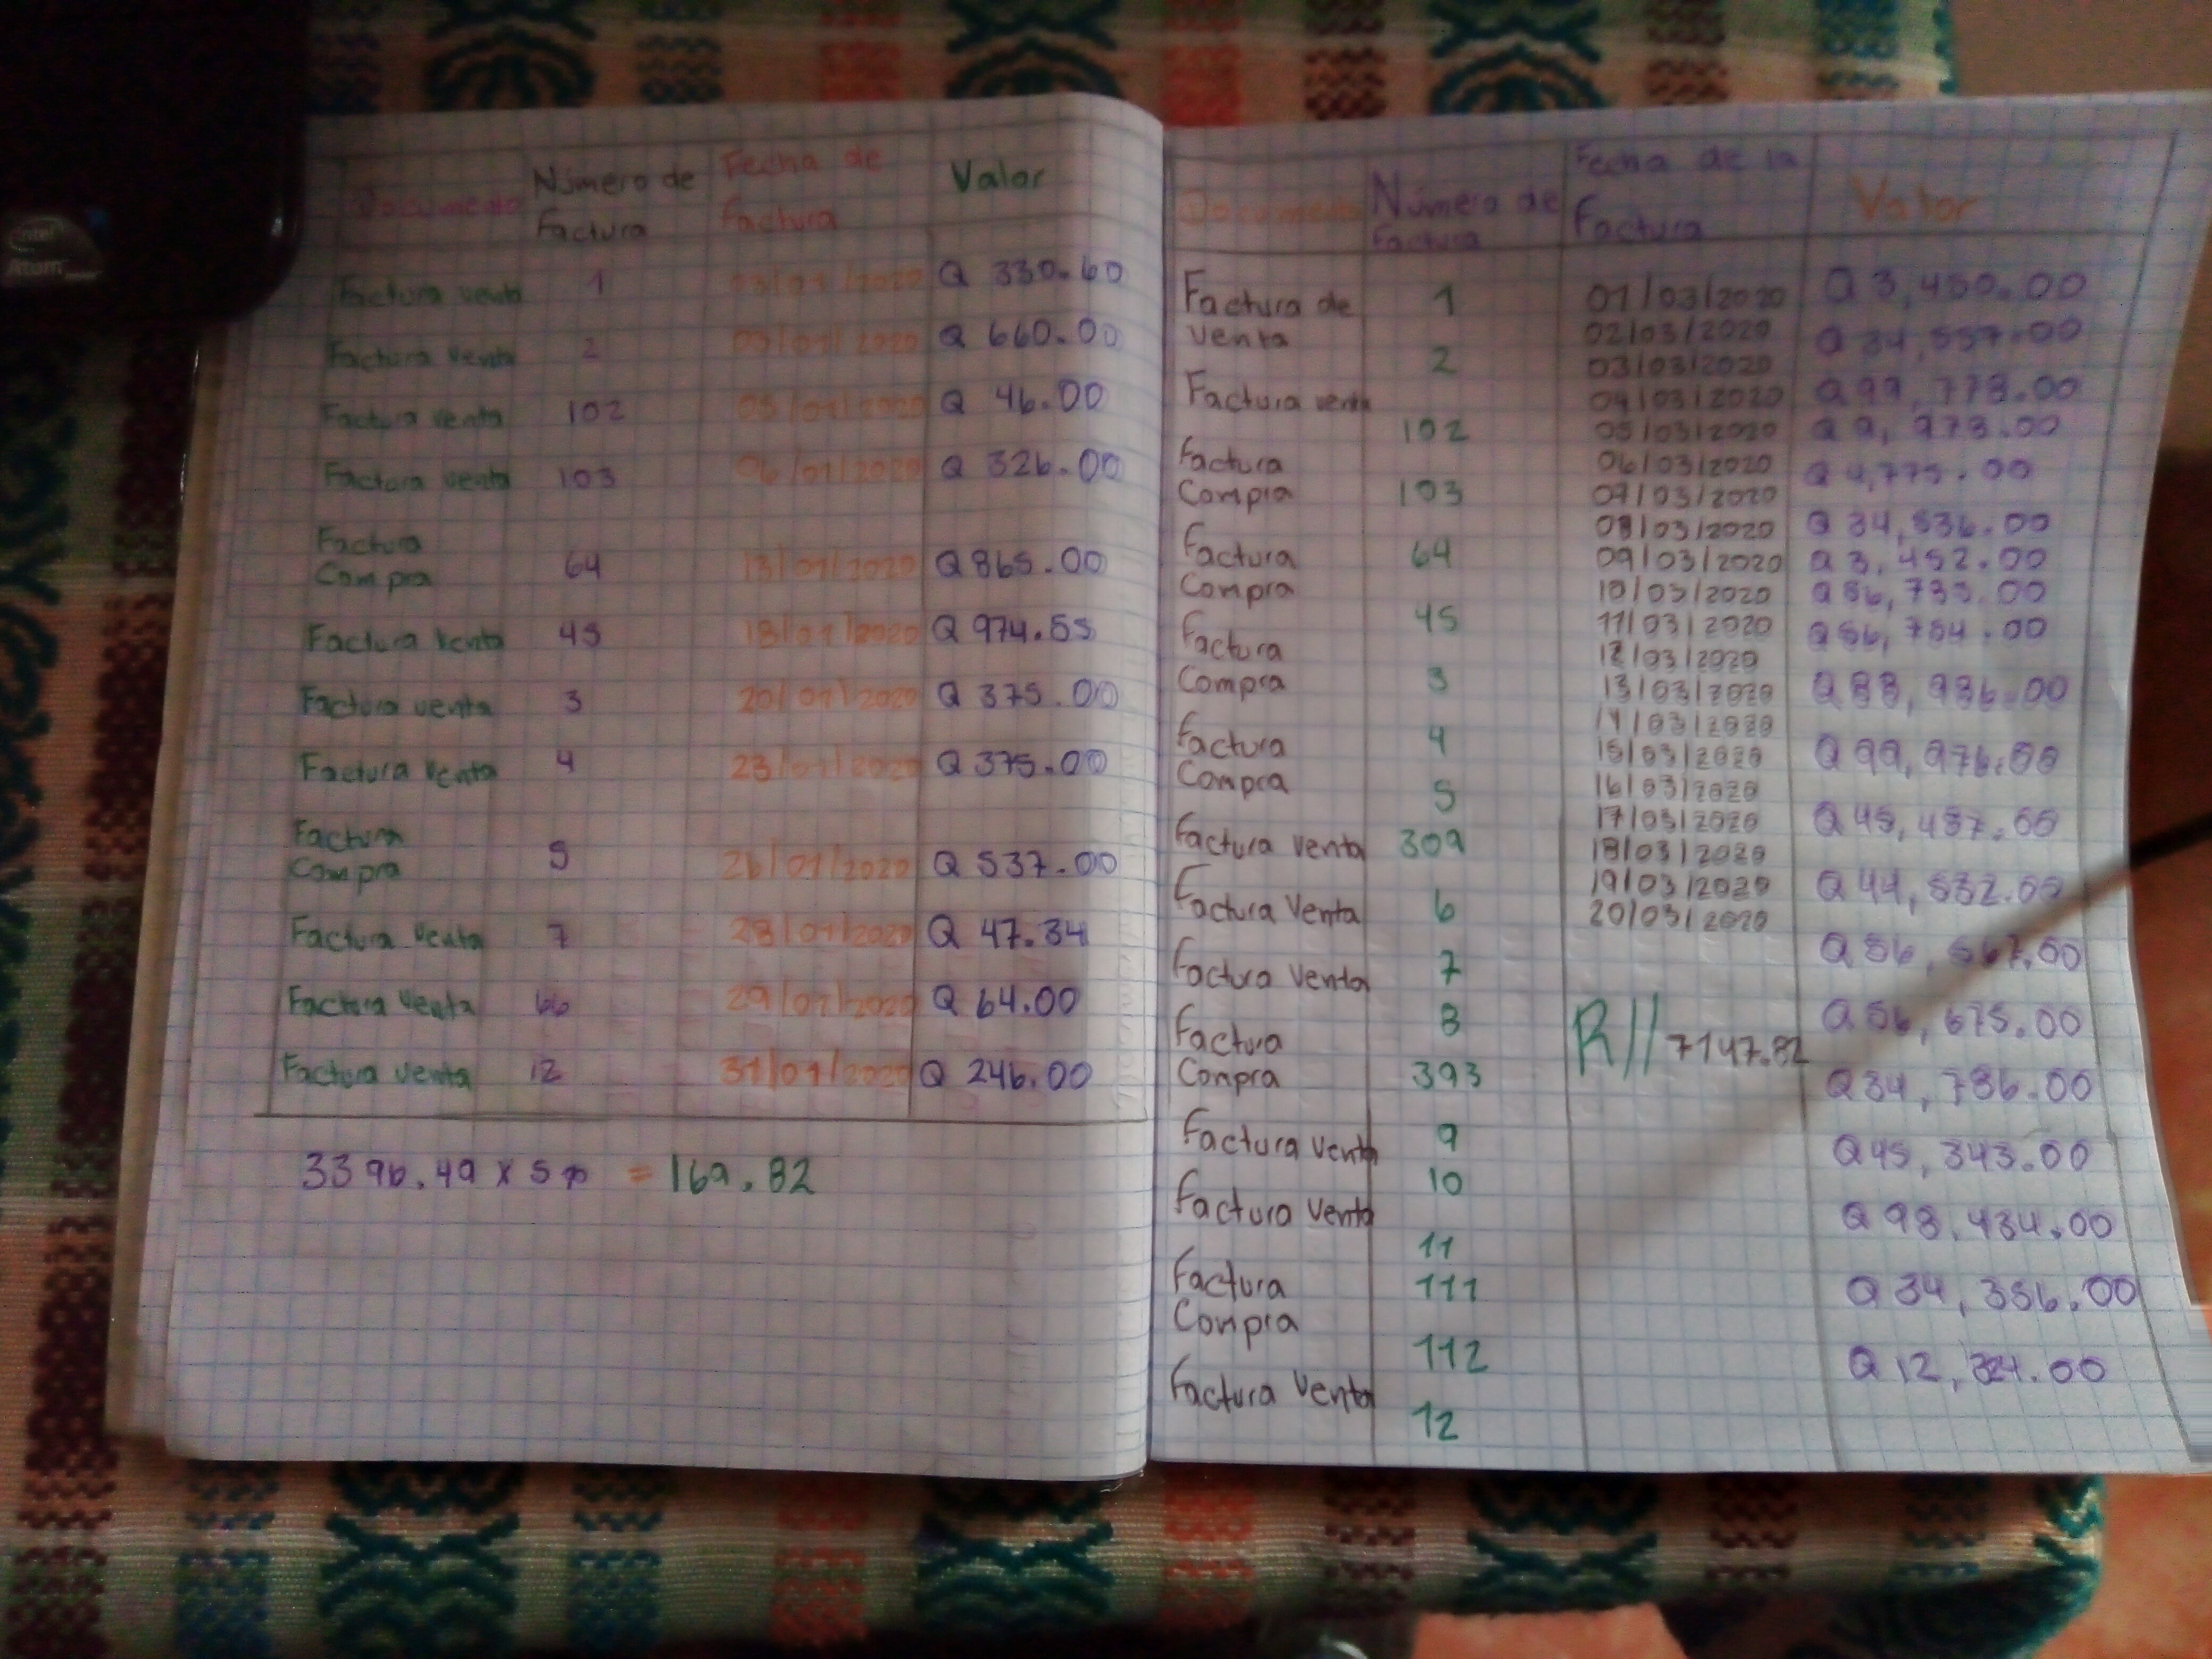 intel
Atom
Documento Número de Factura Fecha de Factura Valor
Factura venta 1 03/01/2020 Q 330.60
Factura venta 2 Q 660.00
Factura venta 102 05/01/2020 Q 46.00
Factura venta 103 06/01/2020 Q 326.00
Factura Compra 64 13/01/2020 Q 865.00
Factura venta 45 18/01/2020 Q 974.55
Factura venta 3 20/01/2020 Q 375.00
Factura venta 4 23/01/2020 Q 375.00
Factura Compra 5 26/01/2020 Q 537.00
Factura venta 7 28/01/2020 Q 47.34
Factura venta 66 29/01/2020 Q 64.00
Factura venta 12 31/01/2020 Q 246.00
3396.49 x 5% = 169.82
Documento Número de Factura Fecha de la Factura Valor
Factura de venta
Factura venta
Factura Compra
Factura Compra
Factura Compra
Factura Compra
Factura venta
Factura Venta
Factura Venta
Factura Compra
Factura Venta
Factura Venta
Factura Compra
Factura Venta
1
2
102
103
64
45
3
4
5
309
6
7
8
393
9
10
11
111
112
12
01/03/2020
02/03/2020
03/03/2020
04/03/2020
05/03/2020
06/03/2020
07/03/2020
08/03/2020
09/03/2020
10/03/2020
11/03/2020
12/03/2020
13/03/2020
14/03/2020
15/03/2020
16/03/2020
17/03/2020
18/03/2020
19/03/2020
20/03/2020
R// 7147.82
Q 3,450.00
Q 34,557.00
Q 99,778.00
Q 9,978.00
Q 4,775.00
Q 34,536.00
Q 3,452.00
Q 56,733.00
Q 56,754.00
Q 88,986.00
Q 99,976.00
Q 45,457.00
Q 44,532.00
Q 56,567.00
Q 56,675.00
Q 34,786.00
Q 45,343.00
Q 98,434.00
Q 34,356.00
Q 12,324.00